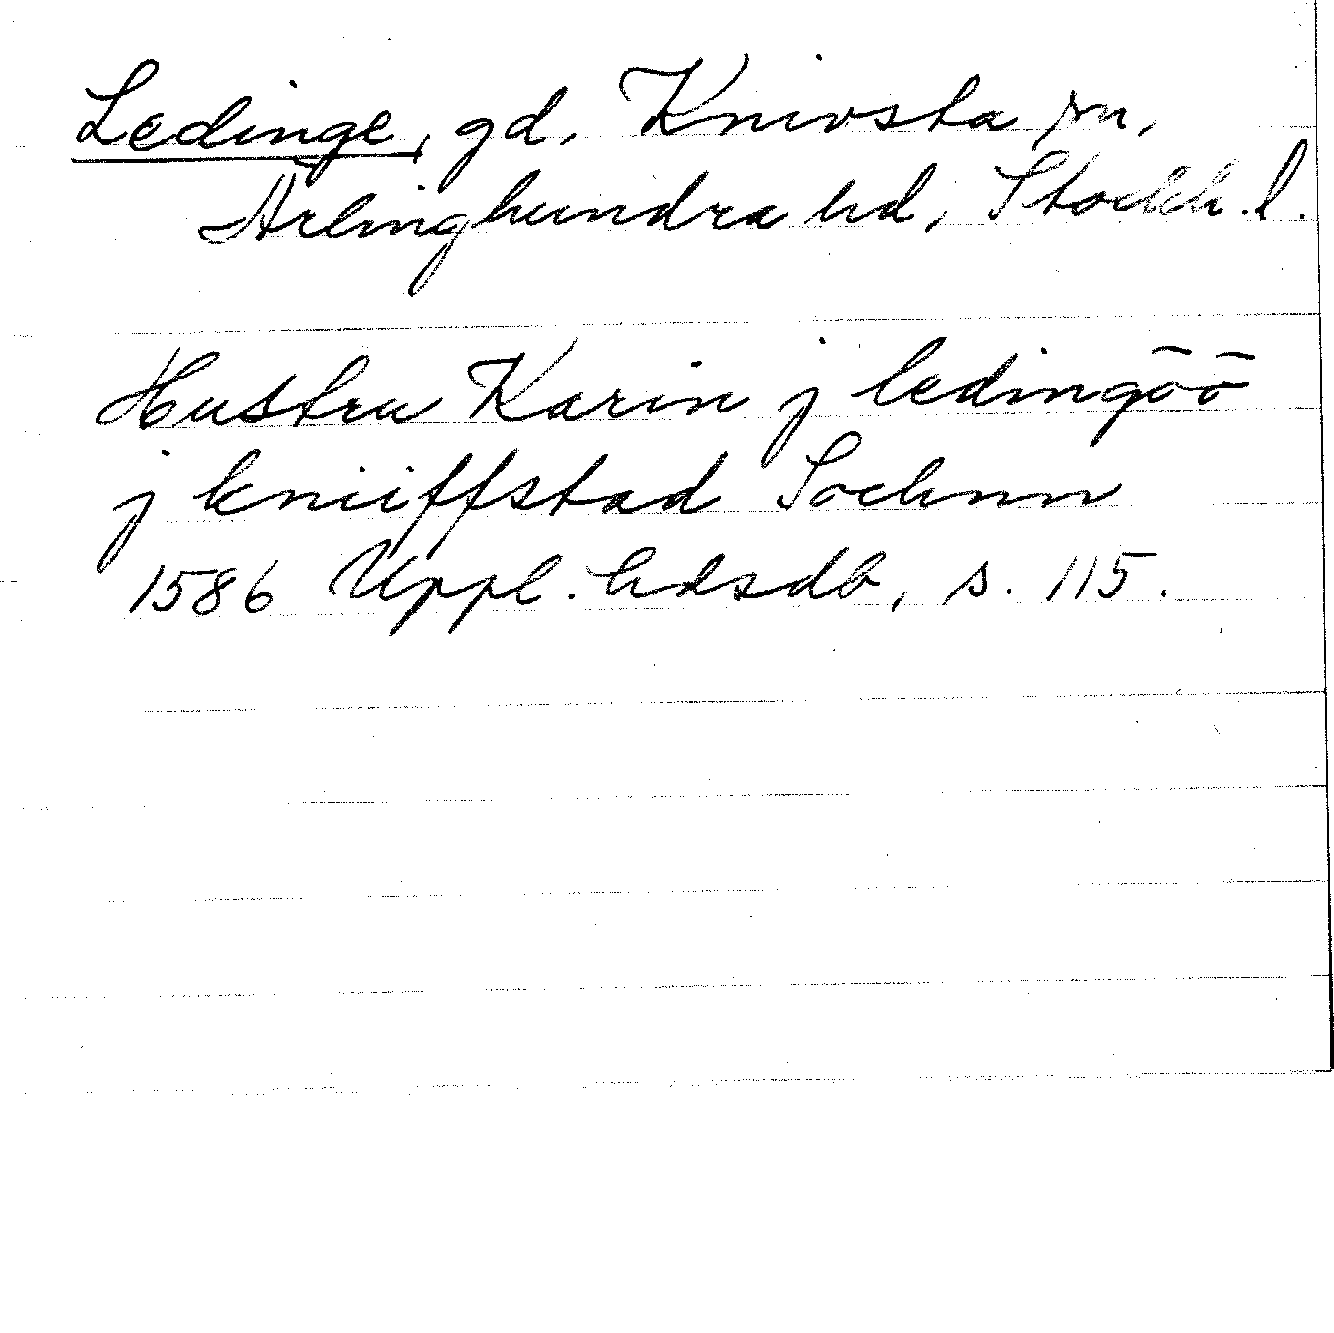 Ledinge, gd, Knivsta sn,
Ärlinghundra hd, Stockh. l.
Hustru Karin j ledingōō
j kniiffstad Sochnn
1586 Uppl. hdsdb, s. 115.